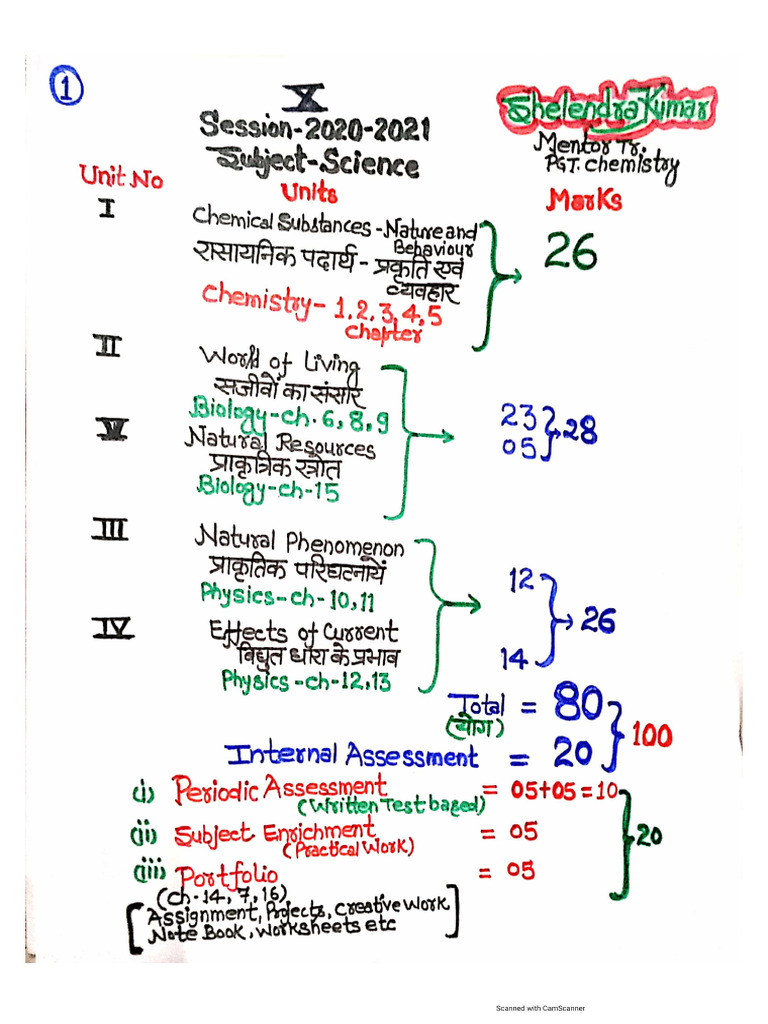 1
X
Shelendra Kumar
Session-2020-2021
Mentor Tr.
Subject-Science
PGT. Chemistry
Unit No
Units
Marks
I
Chemical Substances - Nature and
Behaviour
रासायनिक पदार्थ - प्रकृति एवं
व्यवहार
26
Chemistry- 1,2,3,4,5
Chapter
II
World of Living
सजीवों का संसार
Biology-ch. 6, 8, 9
23
28
V
Natural Resources
05
प्राकृत्रिक स्त्रोत
Biology-ch-15
III
Natural Phenomenon
प्राकृतिक परिघटनायें
12
Physics-ch-10,11
26
IV
Effects of Current
विद्युत धारा के प्रभाव
14
Physics-ch-12,13
Total = 80
(योग)
100
Internal Assessment = 20
(i) Periodic Assessment = 05+05=10
(Written Test based)
(ii) Subject Enrichment = 05
20
(Practical Work)
(iii) Portfolio = 05
(ch-14, 7, 16)
[Assignment, Projects, Creative Work
Note Book, Worksheets etc]
Scanned with CamScanner